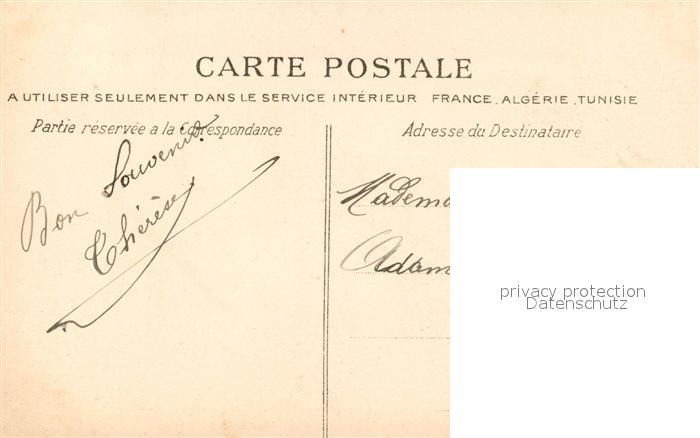 CARTE POSTALE
A UTILISER SEULEMENT DANS LE SERVICE INTÉRIEUR FRANCE, ALGÉRIE, TUNISIE
Partie réservée a la Correspondance
Adresse du Destinataire
Bon Souvenir.
Thérèse
Madem
Adam
privacy protection
Datenschutz